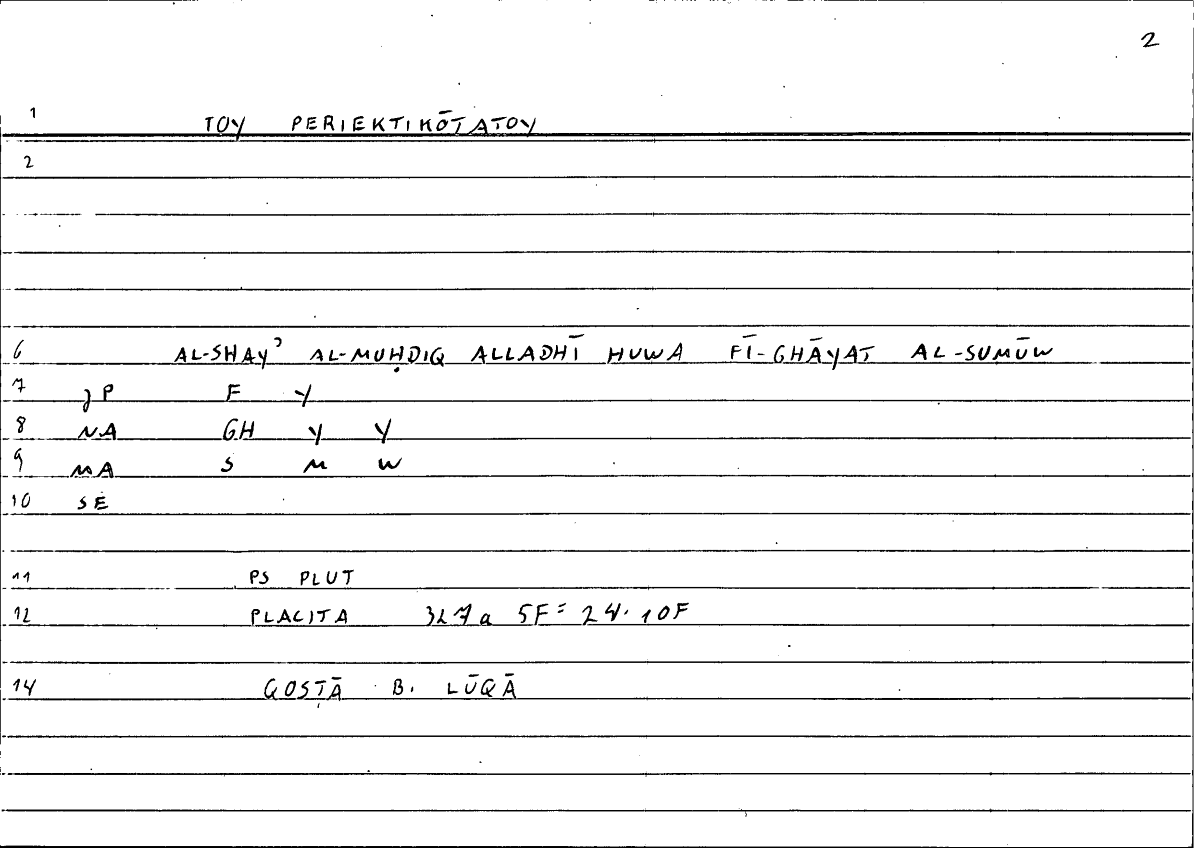 2
1 TOY PERIEKTIKŌTATOY
2
6 AL-SHAYʾ AL-MUḤDIQ ALLADHĪ HUWA FĪ-GHĀYAT AL-SUMŪW
7 P F Y
8 NA GH Y Y
9 MA S M W
10 SE
11 PS PLUT
12 PLACITA 327a 5F = 24.10F
14 QOSṬĀ B. LŪQĀ